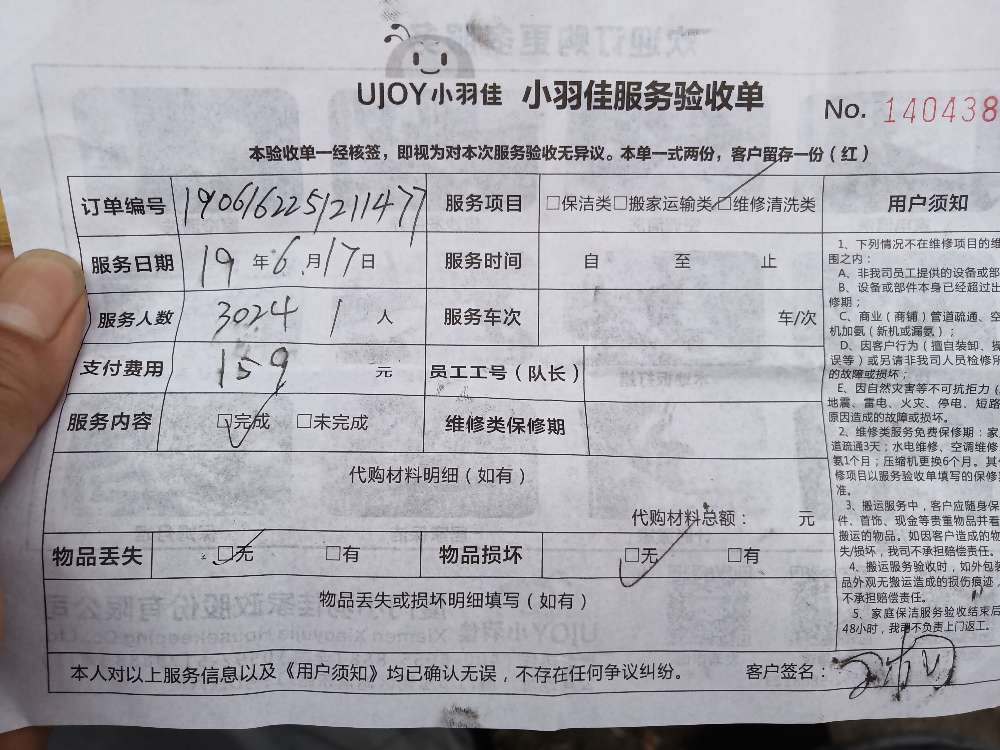 UJOY小羽佳 小羽佳服务验收单
No. 140438
本验收单一经核签，即视为对本次服务验收无异议。本单一式两份，客户留存一份（红）
订单编号 190616225121147 服务项目 □保洁类□搬家运输类□维修清洗类
服务日期 19年6月17日 服务时间 自 至 止
服务人数 3024 1人 服务车次 车/次
支付费用 159 元 员工工号（队长）
服务内容 □完成 □未完成 维修类保修期
代购材料明细（如有）
代购材料总额： 元
物品丢失 □无 □有 物品损坏 □无 □有
物品丢失或损坏明细填写（如有）
本人对以上服务信息以及《用户须知》均已确认无误，不存在任何争议纠纷。 客户签名：
用户须知
1、下列情况不在维修项目的维
围之内：
A、非我司员工提供的设备或部
B、设备或部件本身已经超过出
修期；
C、商业（商铺）管道疏通、空
机加氨（新机或漏氨）；
D、因客户行为（擅自装卸、操
误等）或另请非我司人员检修所
的故障或损坏；
E、因自然灾害等不可抗拒力（
地震、雷电、火灾、停电、短路
原因造成的故障或损坏。
2、维修类服务免费保修期：家
道疏通3天；水电维修、空调维修
氨1个月；压缩机更换6个月。其
修项目以服务验收单填写的保修
准。
3、搬运服务中，客户应随身保
件、首饰、现金等贵重物品并看
搬运的物品。如因客户造成的物
失/损坏，我司不承担赔偿责任。
4、搬运服务验收时，如外包装
品外观无搬运造成的损伤痕迹，
不承担赔偿责任。
5、家庭保洁服务验收结束后
48小时，我司不负责上门返工。